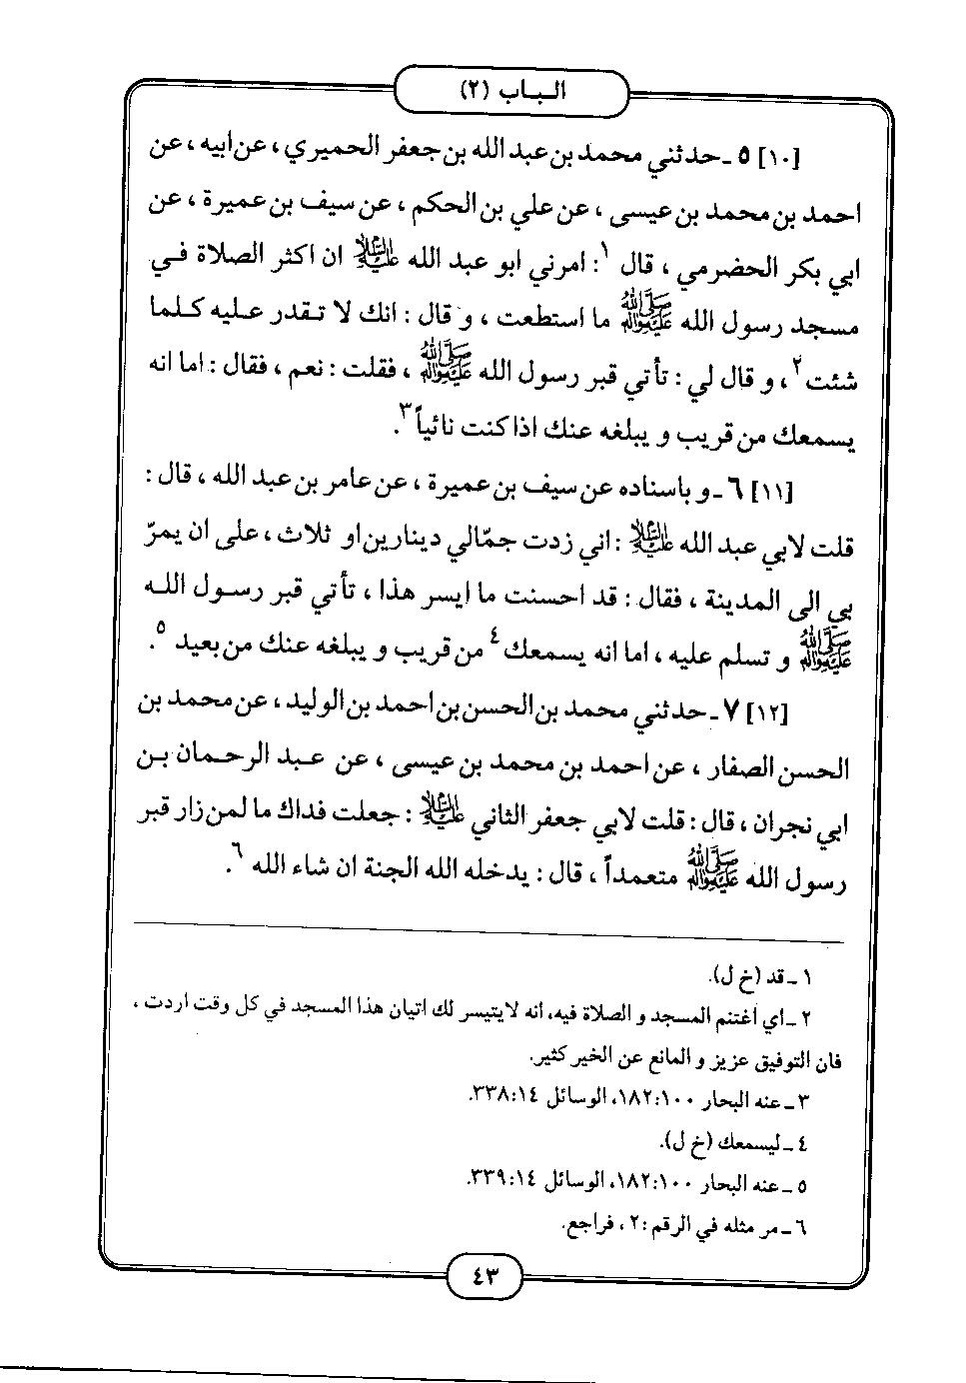 الباب (٢)
[١٠] ٥ ـ حدثني محمد بن عبد الله بن جعفر الحميري ، عن ابيه ، عن
احمد بن محمد بن عيسى ، عن علي بن الحكم ، عن سيف بن عميرة ، عن
ابي بكر الحضرمي ، قال ١ : امرني ابو عبد الله عليه السلام ان اكثر الصلاة في
مسجد رسول الله صلى الله عليه وآله ما استطعت ، و قال : انك لا تقدر عليه كلما
شئت ٢ ، و قال لي : تأتي قبر رسول الله صلى الله عليه وآله ، فقلت : نعم ، فقال : اما انه
يسمعك من قريب و يبلغه عنك اذا كنت نائياً ٣.
[١١] ٦ ـ و باسناده عن سيف بن عميرة ، عن عامر بن عبد الله ، قال :
قلت لابي عبد الله عليه السلام : اني زدت جمّالي دينارين او ثلاث ، على ان يمرّ
بي الى المدينة ، فقال : قد احسنت ما ايسر هذا ، تأتي قبر رسول الله
صلى الله عليه وآله و تسلم عليه ، اما انه يسمعك ٤ من قريب و يبلغه عنك من بعيد ٥.
[١٢] ٧ ـ حدثني محمد بن الحسن بن احمد بن الوليد ، عن محمد بن
الحسن الصفار ، عن احمد بن محمد بن عيسى ، عن عبد الرحمان بن
ابي نجران ، قال : قلت لابي جعفر الثاني عليه السلام : جعلت فداك ما لمن زار قبر
رسول الله صلى الله عليه وآله متعمداً ، قال : يدخله الله الجنة ان شاء الله ٦.
١ ـ قد (خ ل).
٢ ـ اي اغتنم المسجد و الصلاة فيه، انه لا يتيسر لك اتيان هذا المسجد في كل وقت اردت ،
فان التوفيق عزيز و المانع عن الخير كثير.
٣ ـ عنه البحار ١٠٠:١٨٢، الوسائل ١٤:٣٣٨.
٤ ـ ليسمعك (خ ل).
٥ ـ عنه البحار ١٠٠:١٨٢، الوسائل ١٤:٣٣٩.
٦ ـ مر مثله في الرقم :٢ ، فراجع.
٤٣